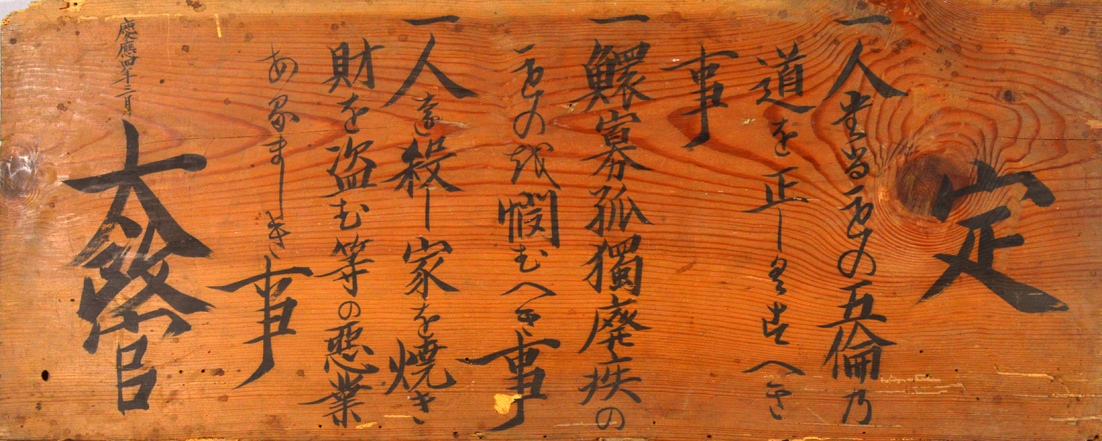 定
一人たるもの五倫乃
道を正しくすへき
事
一鰥寡孤獨廢疾の
もの を憫むへき事
一人を殺し家を焼き
財を盗む等の悪業
あるましき事
慶應四年三月
太政官